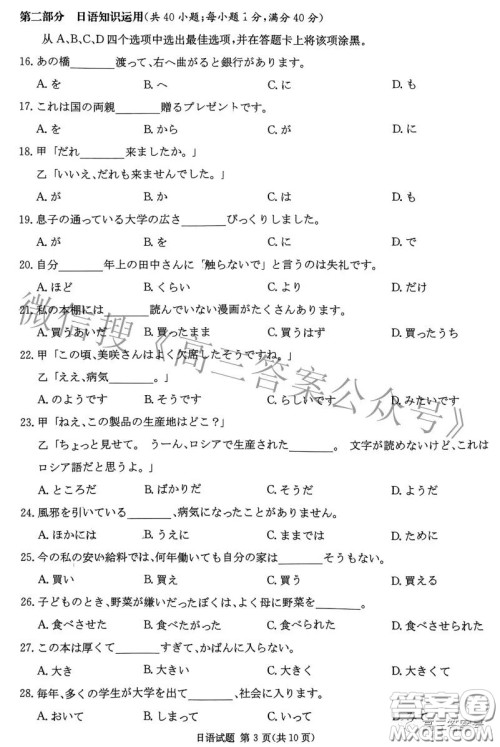 第二部分　日语知识运用(共 40 小题;每小题 1 分,满分 40 分)
从 A、B、C、D 四个选项中选出最佳选项,并在答题卡上将该项涂黑。
16. あの橋______渡って、右へ曲がると銀行があります。
A. を B. へ C. に D. も
17. これは国の両親______贈るプレゼントです。
A. を B. から C. が D. に
18. 甲「だれ______来ましたか。」
乙「いいえ、だれも来ませんでした。」
A. が B. か C. は D. も
19. 息子の通っている大学の広さ______びっくりしました。
A. が B. を C. に D. で
20. 自分______年上の田中さんに「触らないで」と言うのは失礼です。
A. ほど B. くらい C. より D. だけ
21. 私の本棚には______読んでいない漫画がたくさんあります。
A. 買うあいだ B. 買ったまま C. 買うはず D. 買ったうち
22. 甲「この頃、美咲さんはよく欠席したそうですね。」
乙「ええ、病気______。」
A. のようです B. そうです C. らしいです D. みたいです
23. 甲「ねえ、この製品の生産地はどこ?」
乙「ちょっと見せて。 うーん、ロシアで生産された______。 文字が読めないけど、これは
ロシア語だと思うよ。」
A. ところだ B. ばかりだ C. そうだ D. ようだ
24. 風邪を引いている______、病気になってしまいました。
A. ほかには B. うえに C. ままでは D. ために
25. 今の私の安い給料では、何年働いても自分の家は______そうもない。
A. 買い B. 買え C. 買う D. 買える
26. 子どものとき、野菜が嫌いだったぼくは、よく母に野菜を______。
A. 食べさせた B. 食べたがった C. 食べさせられた D. 食べさせてもらった
27. この本は厚くて______すぎて、かばんに入らない。
A. 大き B. 大きい C. 大きく D. 大きくて
28. 毎年、多くの学生が大学を出て______、社会に入ります。
A. おいて B. しまって C. いって
日语试题　第 3 页(共 10 页)
微信搜《高三答案公众号》
答案圈